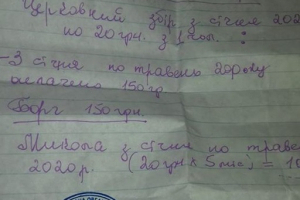 Церковний збір з січня 202
по 20 грн. з 1 чол. :
- З січня по травень 20 року
оплачено 150 гр.
Борг 150 грн.
Микола з січня по траве
2020 р. (20 грн х 5 міс) = 1